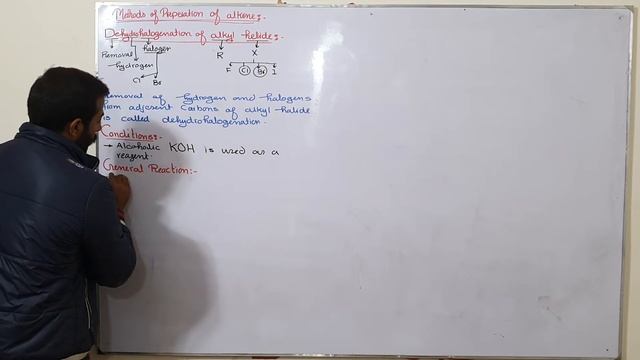 Methods of Preperation of alkene:-
Dehydrohalogenation of alkyl halide:-
Removal halogen R X
hydrogen F Cl Br I
Cl Br
Removal of hydrogen and halogens
from adjecent carbons of alkyl-halide
is called dehydrohalogenation.
Conditions:-
→ Alcoholic KOH is used as a
reagent.
General Reaction:-